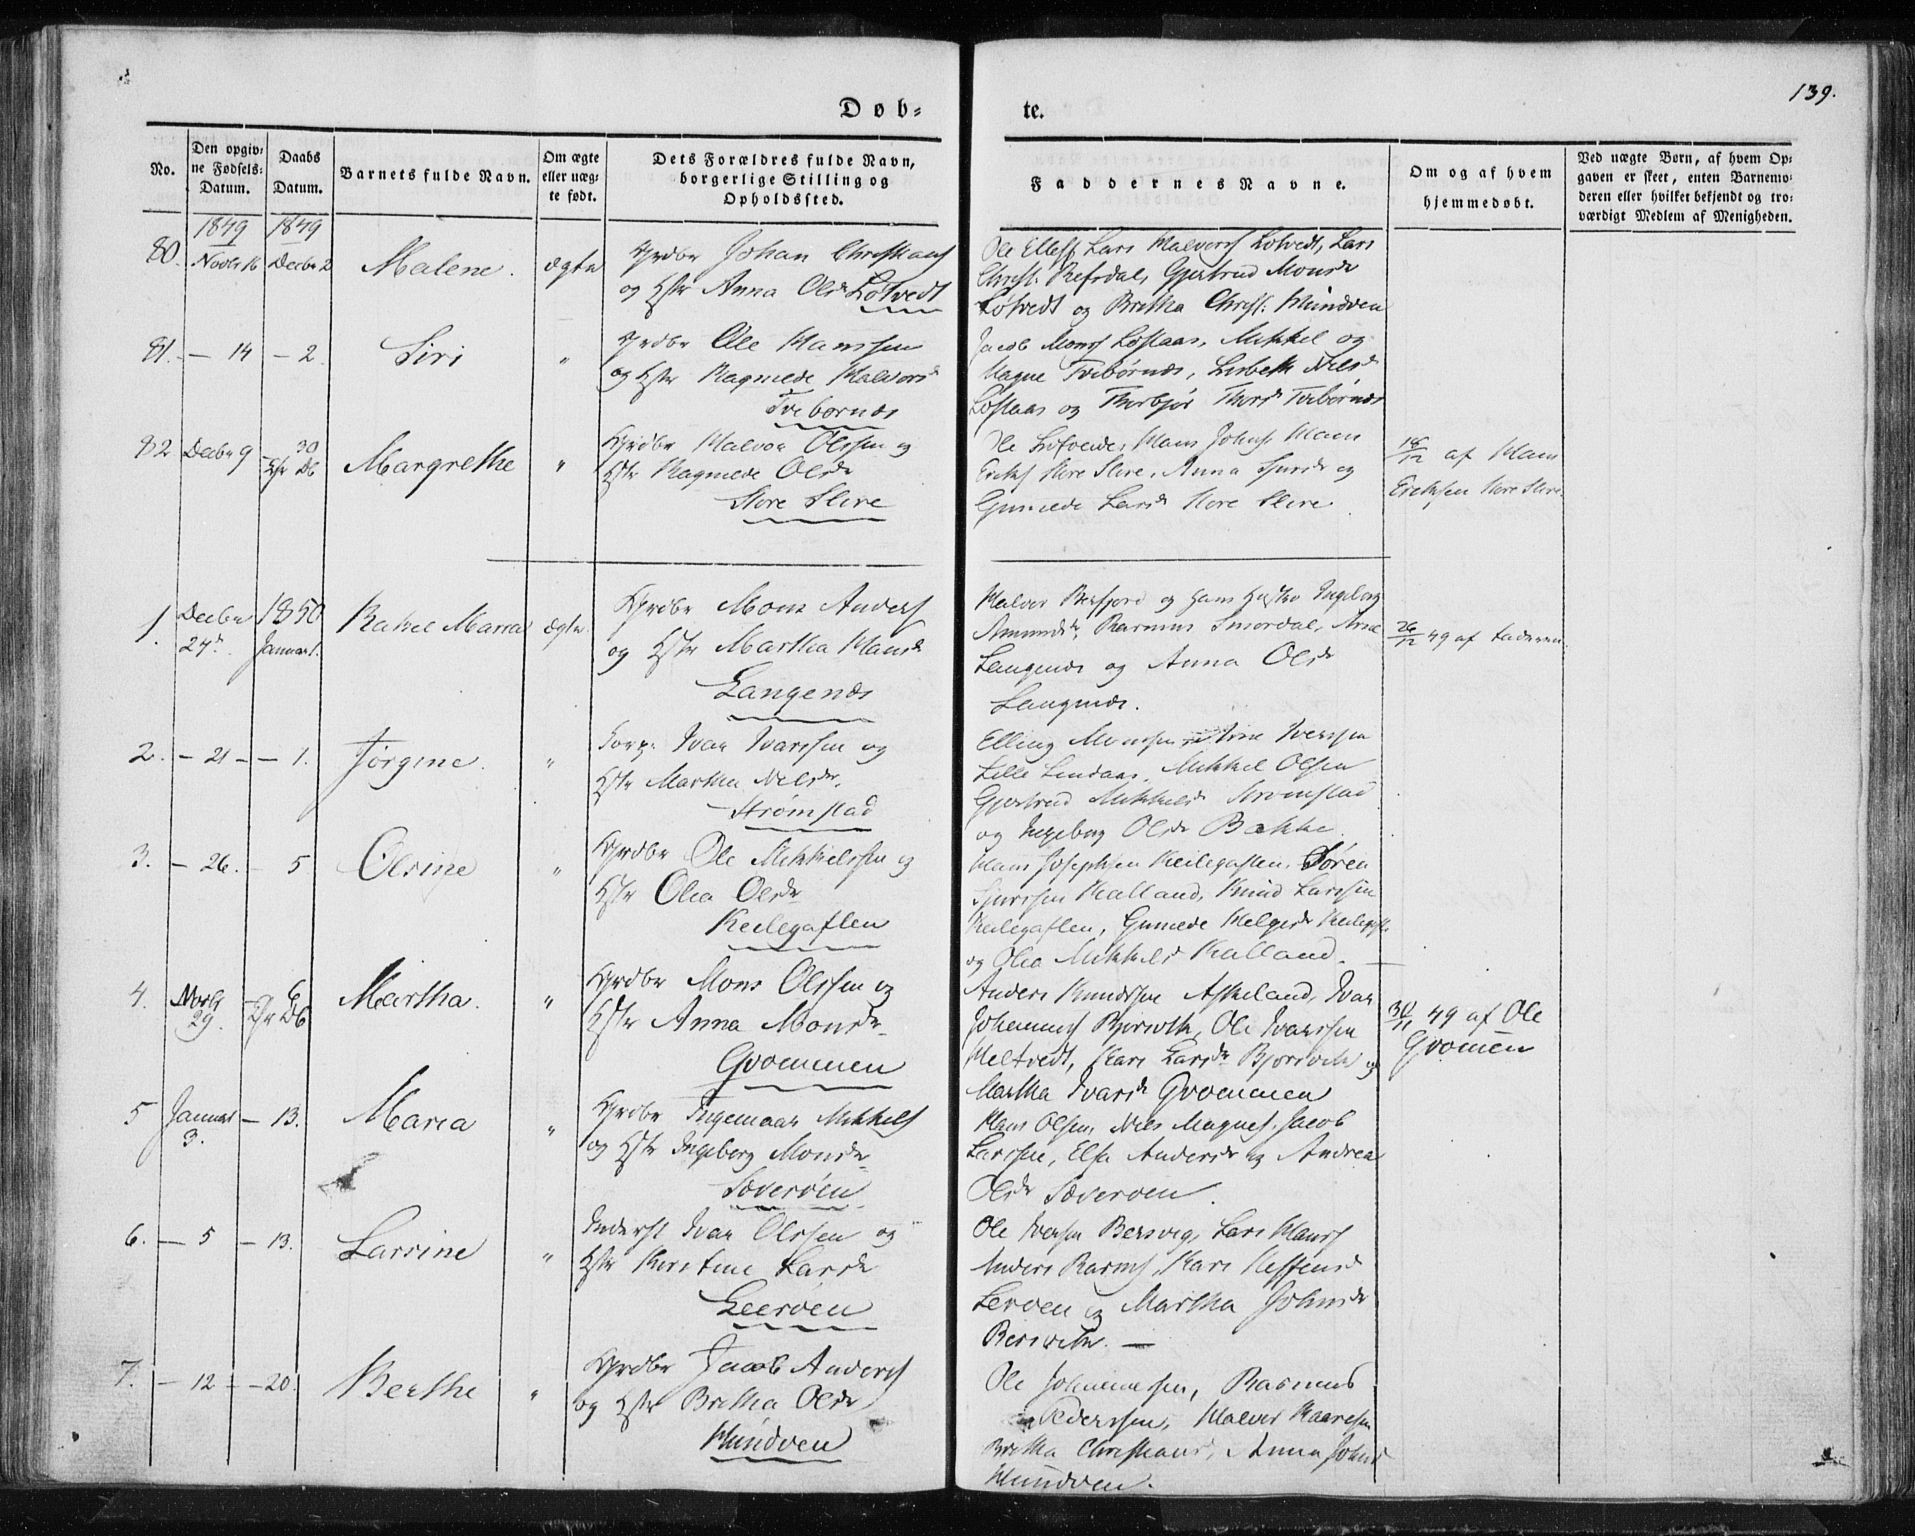 139.
Døb-
te.
No.
Den opgiv-
ne Fødsels-
Datum.
Daabs
Datum.
Barnets fulde Navn.
Om ægte
eller uæg-
te født.
Dets Forældres fulde Navn,
borgerlige Stilling og
Opholdssted.
Faddernes Navne.
Om og af hvem
hjemmedøbt.
Ved uægte Børn, af hvem Op-
gaven er skeet, enten Barnemo-
deren eller hvilket bekjendt og tro-
værdigt Medlem af Menigheden.
1849
1849
80.
Novbr 16
Decbr 2
Malene.
ægte
Grdbr Johan Christians
og Hstr Anna Olsdr Lotvedt
Ole Ellefs Lars Halvors Lotvedt, Lars
Christ. Refsdal, Gjertrud Monsdr
Lotvedt og Britha Christ. Mundven
81.
— 14
— 2.
Siri
"
Grdbr Ole Hanssen
og Hstr Ragnede Halvorsd
Tvibornæs
Jacob Mons Loftaas, Mikkel og
Magne Tvibørnæs, Lisbeth Nilsd
Loftaas og Thorbjør Thorsd Tvibørnæs
82
Decbr 9
30
Margrethe
"
Grdbr Halvor Olssen og
Hstr Ragnede Olsdr
Store Slire
Ole Lotvedt, Hans Johns, Hans
Eriks Store Slire, Anna Sjursdr og
Gunnede Larsd Store Slire
16/12 af Hans
Eriksen Store Slire
1.
Decbr
24de
1850
Januar 1.
Rakel Maria
ægte
Grdbr Mons Anders
og Hstr Martha Hansdr
Langenæs
Halvor Refsjord og hans Hustru Ingeborg
Amundsdr, Rasmus Smordal, Arne
Langenæs og Anna Olsdr
Langenæs.
26/12 49 af Faderen
2.
— 21
— 1.
Jørgine.
"
Corp. Ivar Ivarssen og
Hstr Martha Nilsdr.
Strømstad
Elling Monssen Iversen
Lille Lindaas, Mikkel Olsen
Gjertrud Mikkelsdr Strømstad
og Ingeborg Olsdr Bakke.
3.
— 26.
— 5
Olsine
"
Grdbr Ole Mikkelssen og
Hstr Olea Olsdr
Keilegaflen
Hans Josephsen Keilegaflen, Søren
Sjurssen Kalland, Knud Larssen
Keilegaflen, Gunnede Helgesdr
og Olea Mikkelsd Kalland.
4.
Novbr
29.
6
Martha.
"
Grdbr Mons Olssen og
Hstr Anna Monsdr
Gvommen
Anders Knudsson Askeland, Ivar
Johannes Bjorsvik, Ole Ivarssen
Heltvedt, Kari Larsdr Bjorsvik og
Martha Ivarsdr Gvommen
30/11 49 af Ole
Gvomen
5
Januar
3.
— 13.
Maria
"
Grdbr Ingemaar Mikkels
og Hstr Ingeborg Monsdr
Sæverøen
Hans Olsen, Nils Magnes, Jacob
Larssen, Elsa Andersdr og Andrea
Olsdr Sæverøen.
6.
— 5
— 13.
Larsine
"
Inderst Ivar Olssen og
Hstr Kirstine Larsdr
Leerøen
Ole Iversen Bersvig, Lars Hans
Anders Rasms, Kari Steffensdr
Lerøen og Martha Johnsdr
Bersvik. —
7.
— 12
— 20.
Berthe
"
Grdbr Jacob Anders
og Hstr Britha Olsdr
Mundven
Ole Johannessen, Rasmus
Pederssen, Halvor Haaresen
Britha Christians, Anna Johns
Mundven.